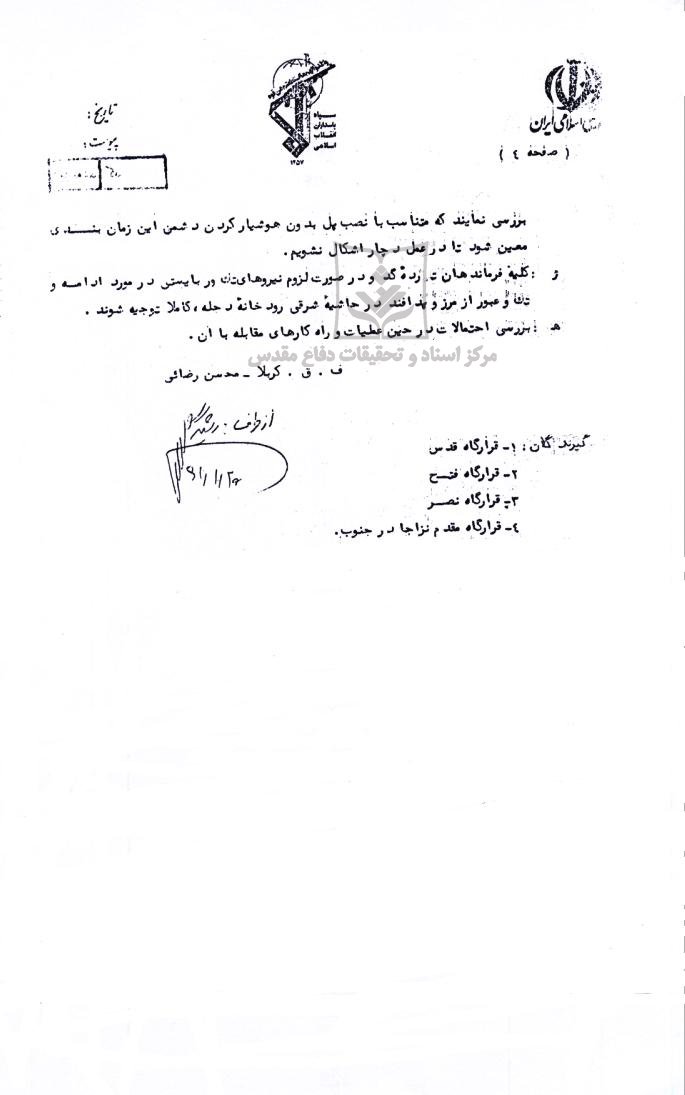 تاریخ :
پیوست :
سپاه
پاسداران
انقلاب
اسلامی
۱۳۵۷
اسلامی ایران
( صفحه ٤ )
بررسی نمایند که متناسب با نصب پل بدون هوشیار کردن دشمن این زمان بندی
معین شود تا در عمل دچار اشکال نشویم .
ز : کلیهٔ فرماندهان تا ردهٔ گد و در صورت لزوم نیروهای تك ور بایستی در مورد ادامه و
تك و عبور از مرز و پدافند در حاشیهٔ شرقی رودخانهٔ دجله ، کاملا توجیه شوند .
هـ : بررسی احتمالات در حین عملیات و راه کارهای مقابله با آن .
مرکز اسناد و تحقیقات دفاع مقدس
ف . ق . کربلا ـ محسن رضائی
از طرف : رشید
گیرندگان : ۱ـ قرارگاه قدس
۲ـ قرارگاه فتح
۳ـ قرارگاه نصر
٤ـ قرارگاه مقدم نزاجا در جنوب .